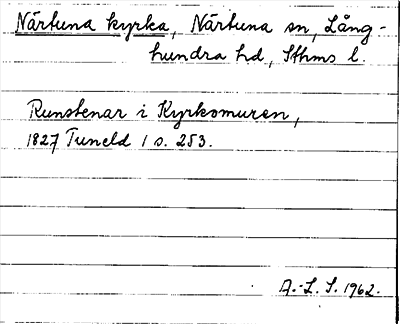 Närtuna kyrka, Närtuna sn, Lång-
hundra hd, Sthms l.
Runstenar i Kyrkomuren,
1827 Tuneld 1 s. 253.
A.-L. S. 1962.